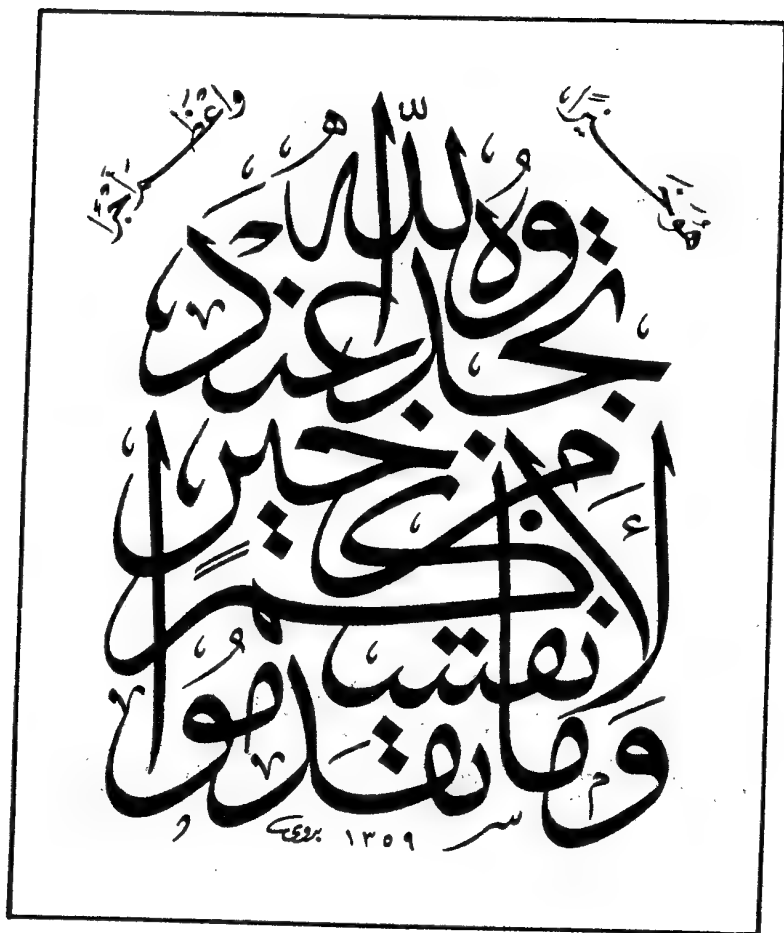 وَمَا تُقَدِّمُوا
لأَنْفُسِكُمْ
مِنْ خَيْرٍ
تَجِدُوهُ
عِنْدَ اللّٰهِ
هُوَ خَيْرًا
وَأَعْظَمَ أَجْرًا
١٣٥٩